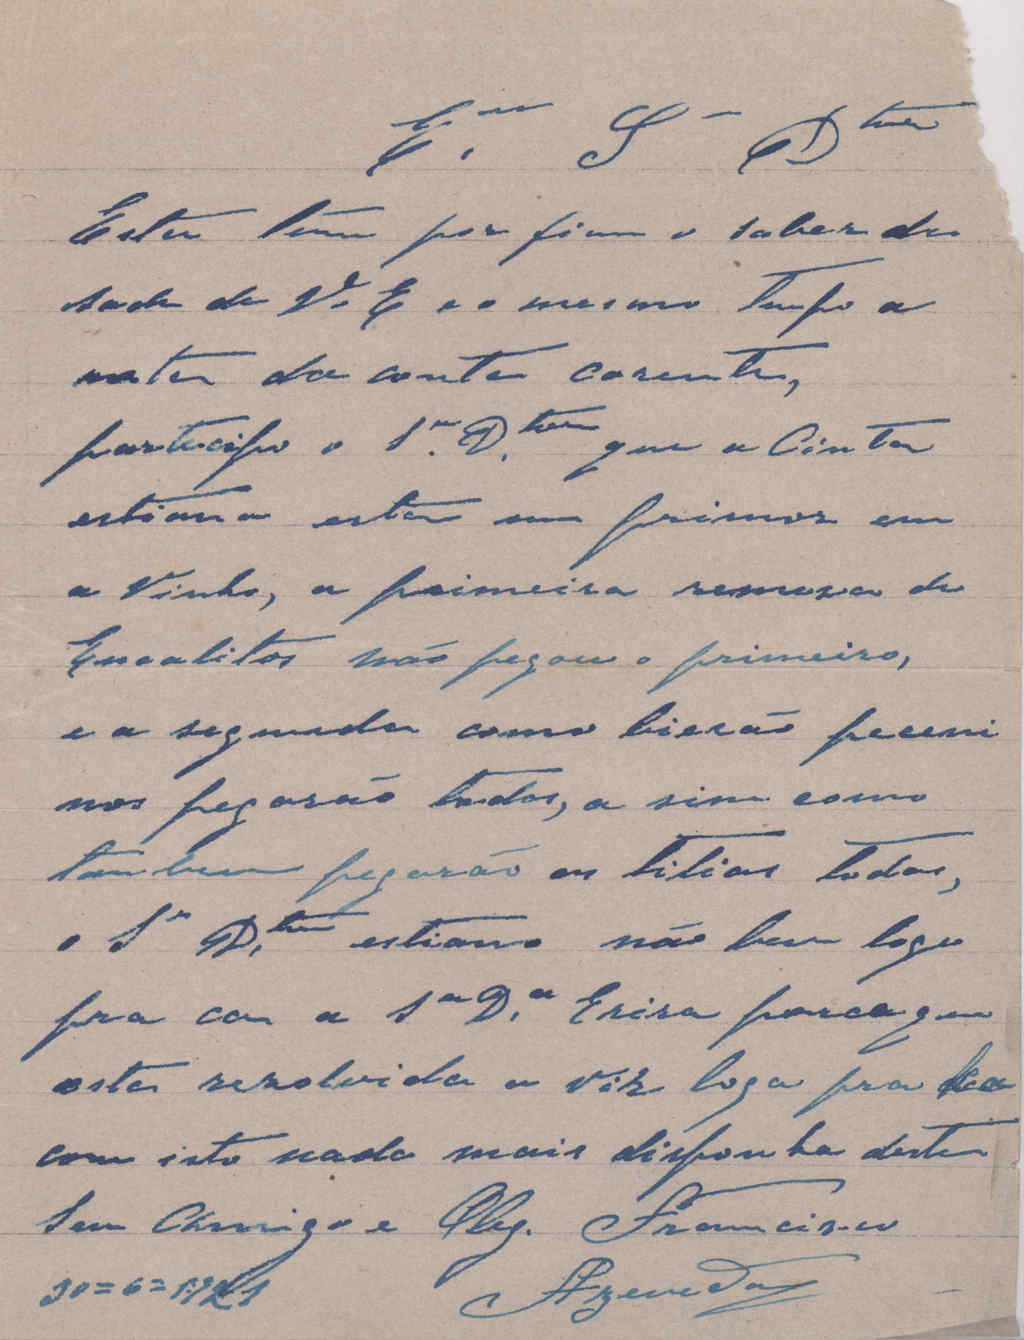 E.mo Sr Dtor
Esta tem por fim o saber da
saude de V.ª E e o mesmo tempo a
mater da conta corente,
participo o Sr. D.tor que a Cinta
estiana esta um primor em
a Vinho, a primeira remexa de
Encalitos não pegou o primeiro,
e a segunda como bierão peceni
nos pegarão todos, a sim como
tambem pegarão as tilias todas,
o Sr D.tor estiano não bem logo
pra ca a Sª D.ª Erira parca que
esta rezolvida a vir loga pra ca
com isto nada mais disponha deste
Seu Amigo e Obg. Francisco
30=6=1921 Azevedo